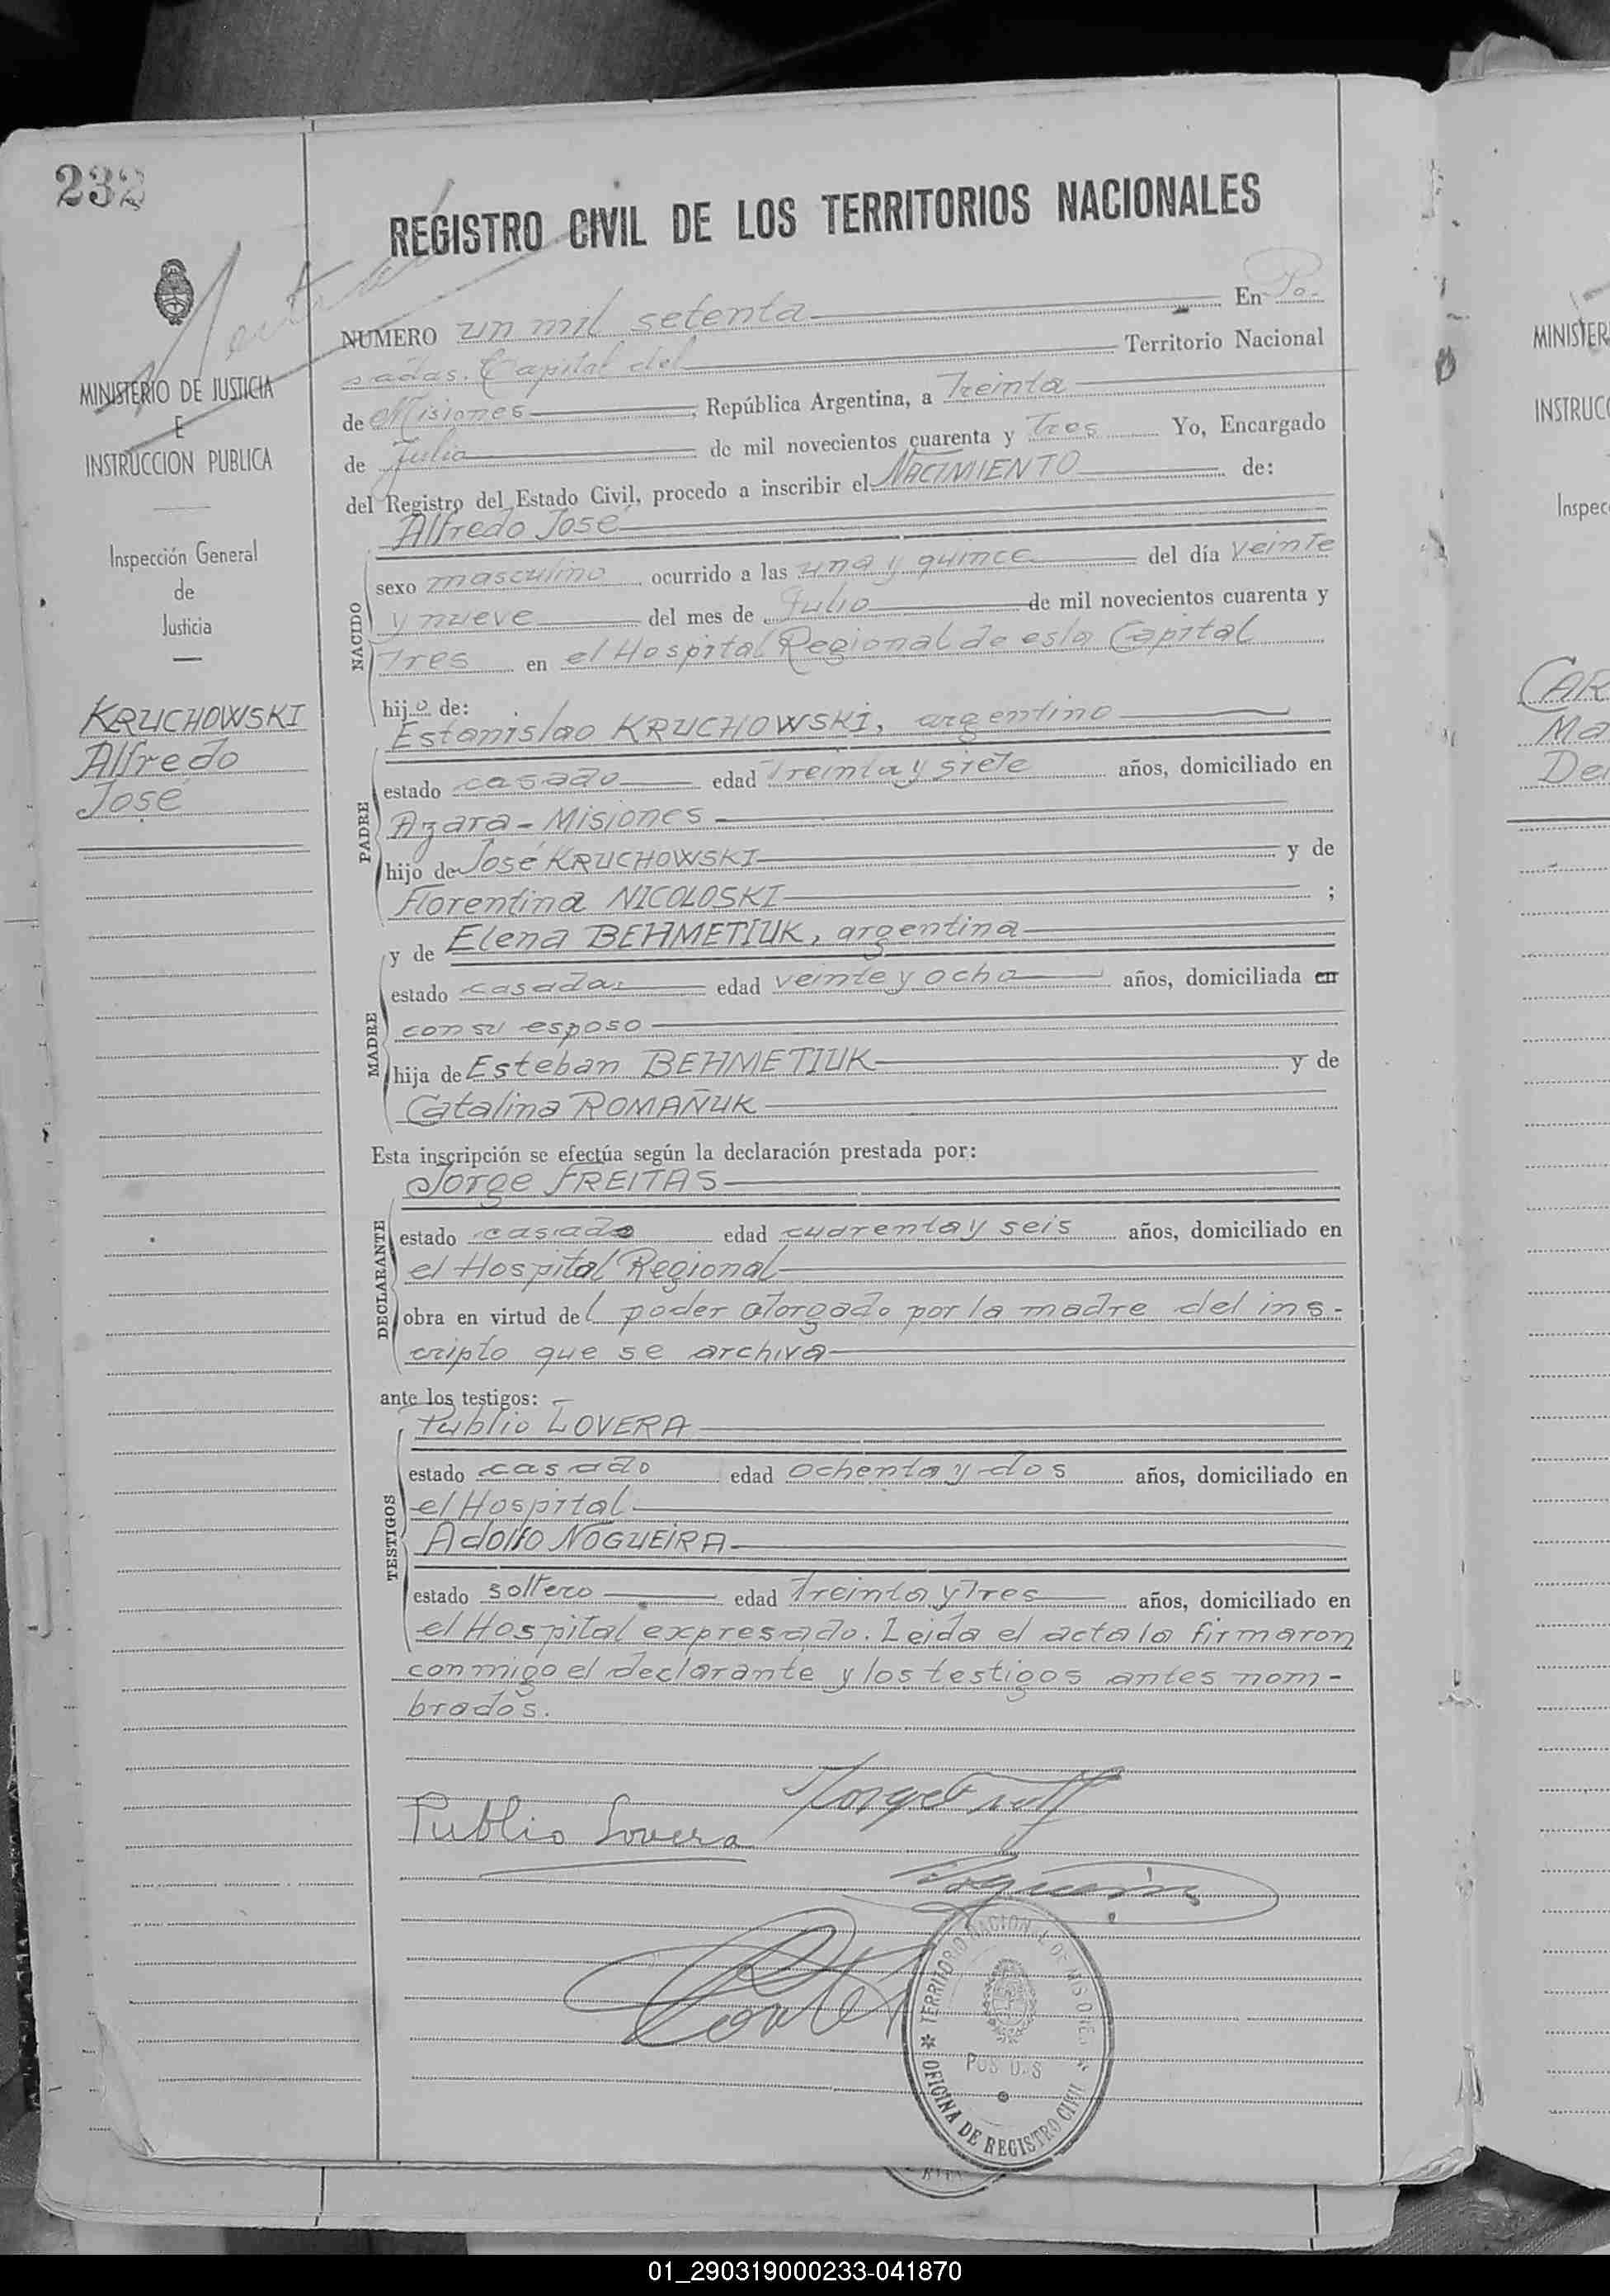 232
REGISTRO CIVIL DE LOS TERRITORIOS NACIONALES
MINISTERIO DE JUSTICIA
E
INSTRUCCION PUBLICA
Inspección General
de
Justicia
KRUCHOWSKI
Alfredo
José
NUMERO un mil setenta En Po-
sadas. Capital del Territorio Nacional
de Misiones, República Argentina, a Treinta
de Julio de mil novecientos cuarenta y Tres Yo, Encargado
del Registro del Estado Civil, procedo a inscribir el NACIMIENTO de:
NACIDO
Alfredo José
sexo masculino ocurrido a las una y quince del día veinte
y nueve del mes de Julio de mil novecientos cuarenta y
Tres en el Hospital Regional de esta Capital
hijo de:
PADRE
Estanislao KRUCHOWSKI, argentino
estado casado edad Treinta y siete años, domiciliado en
Azara - Misiones
hijo de José KRUCHOWSKI y de
Florentina NICOLOSKI ;
MADRE
y de Elena BEHMETIUK, argentina
estado casada edad veinte y ocho años, domiciliada en
con su esposo
hija de Esteban BEHMETIUK y de
Catalina ROMAÑUK
Esta inscripción se efectúa según la declaración prestada por:
DECLARANTE
Jorge FREITAS
estado casado edad cuarenta y seis años, domiciliado en
el Hospital Regional
obra en virtud del poder otorgado por la madre del ins-
cripto que se archiva
ante los testigos:
TESTIGOS
Publio LOVERA
estado casado edad ochenta y dos años, domiciliado en
el Hospital
Adolfo NOGUEIRA
estado soltero edad Treinta y Tres años, domiciliado en
el Hospital expresado. Leida el acta la firmaron
conmigo el declarante y los testigos antes nom-
brados.
Publio Lovera
Nogueira
TERRITORIO NACIONAL DE MISIONES
POSADAS
OFICINA DE REGISTRO CIVIL
MINISTER
INSTRUCC
Inspec
CAR
Ma
De
01_290319000233-041870